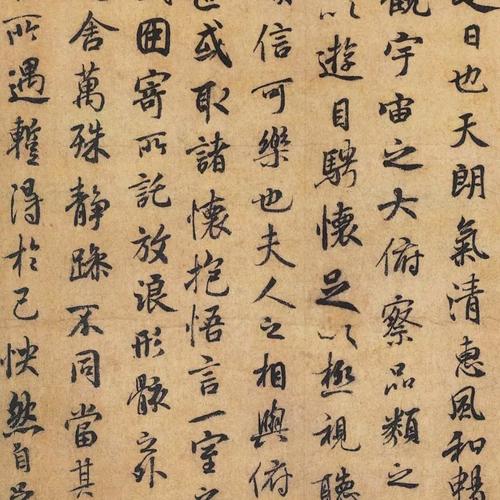 是日也天朗氣清惠風和暢
觀宇宙之大俯察品類之
以遊目騁懷足以極視聽
信可樂也夫人之相與俯
世或取諸懷抱悟言一室之
因寄所託放浪形骸之外
舍萬殊静躁不同當其
所遇蹔得於己怏然自足